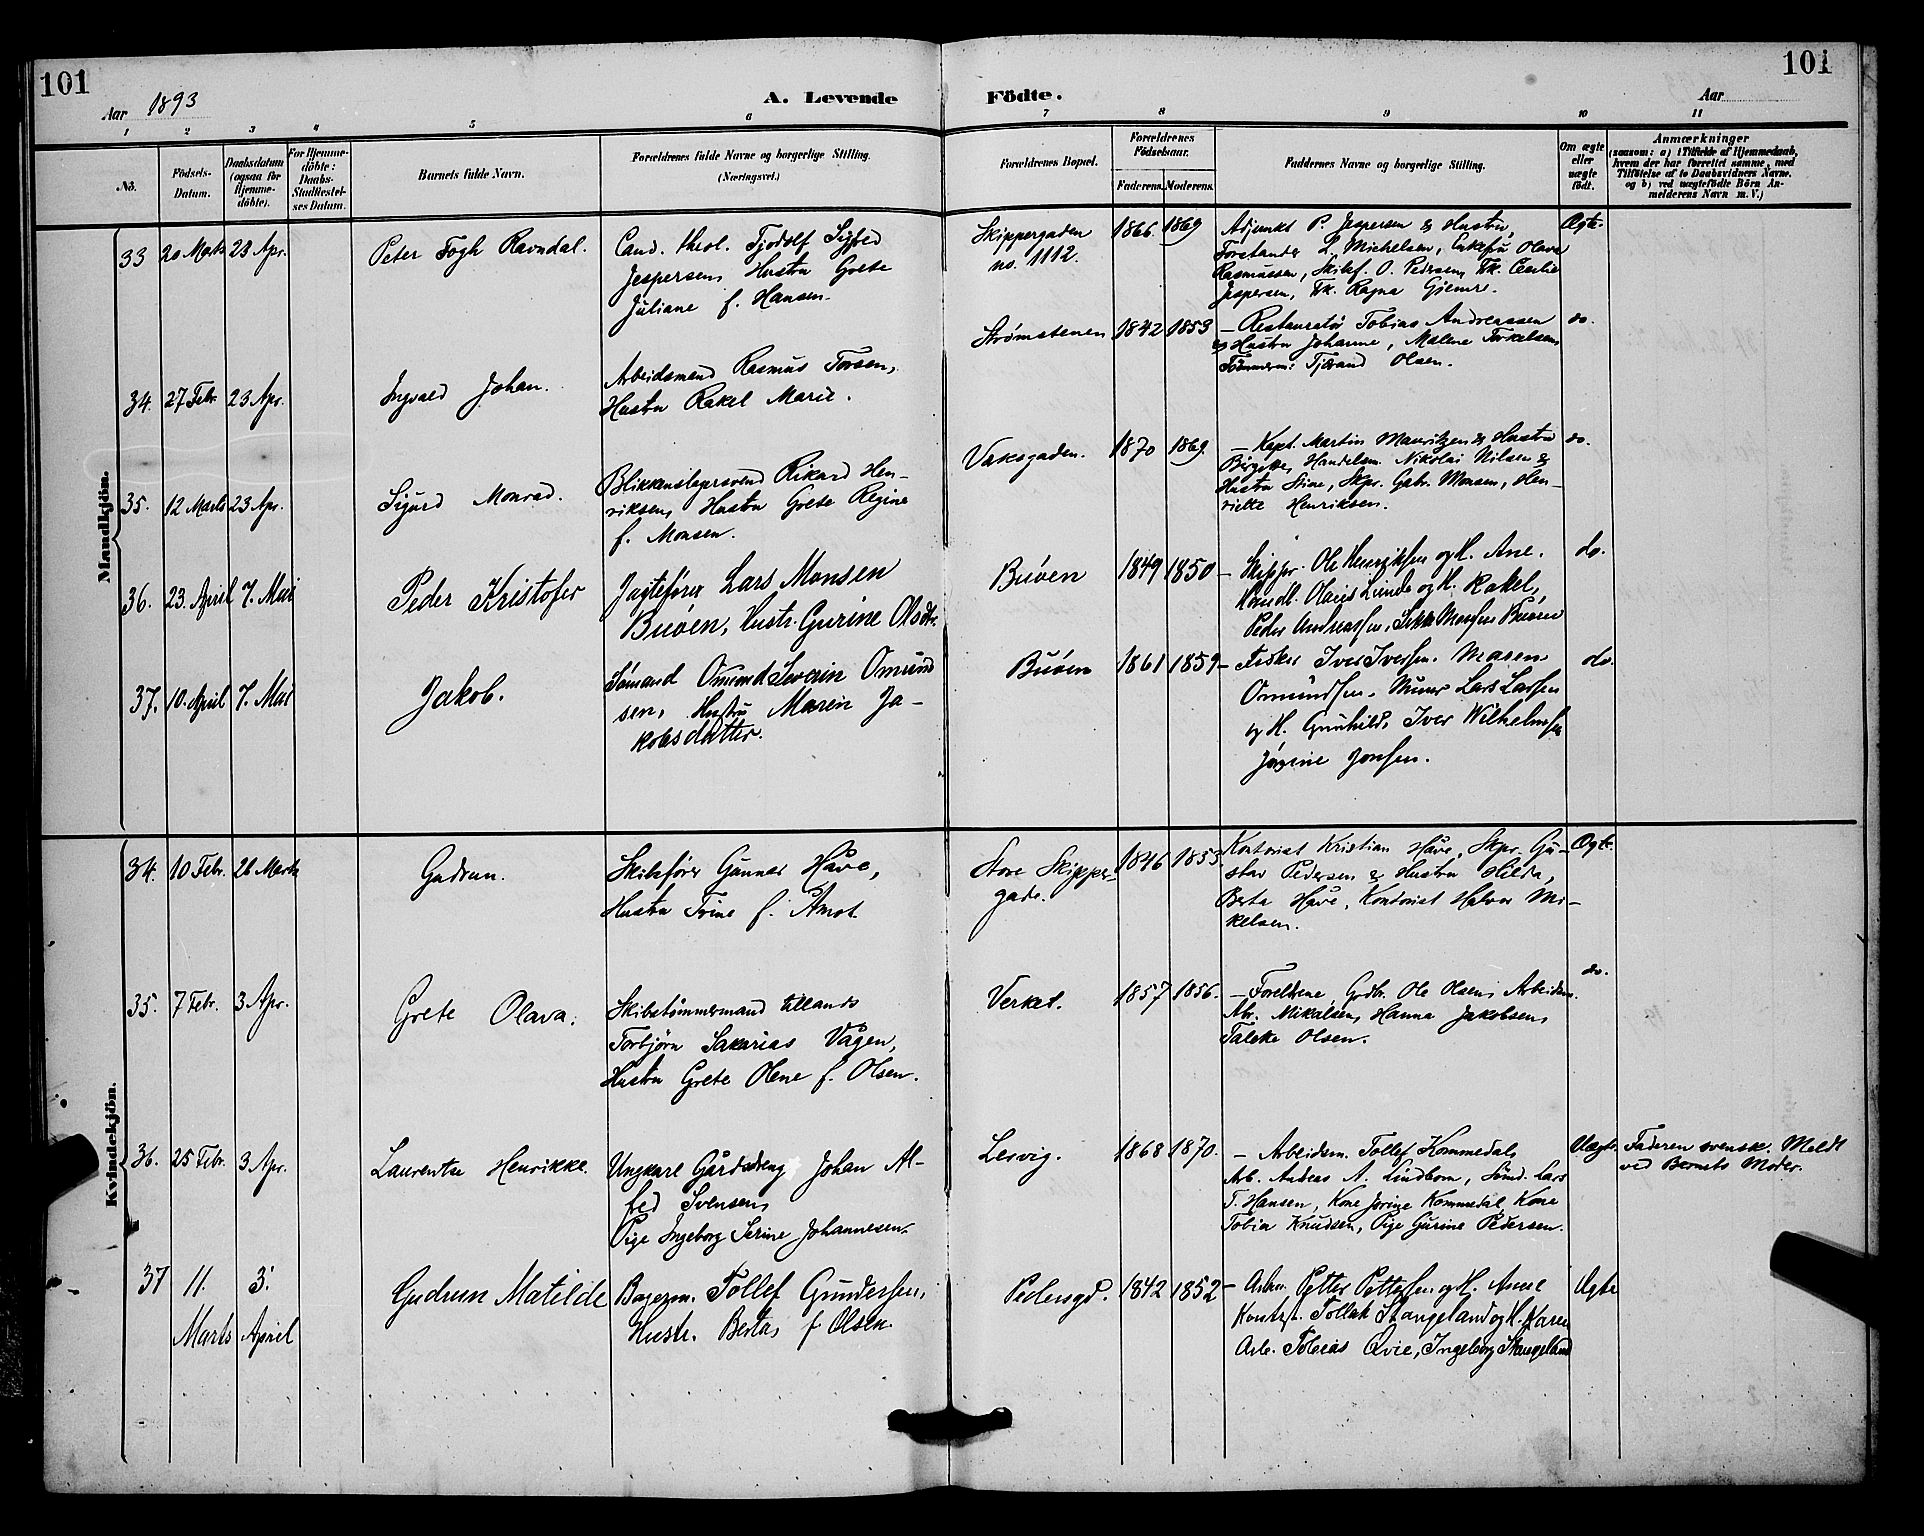 101
101
Aar 1893
A. Levende Födte.
Aar
1 2 3 4 5 6 7 8 9 10 11
No.
Födsels-
Datum.
Daabsdatum
(ogsaa for
Hjemme-
döbte).
For Hjemme-
döbte:
Daabs-
Stadfæstel-
ses Datum.
Barnets fulde Navn.
Forældrenes fulde Navne og borgerlige Stilling.
(Næringsvei.)
Forældrenes Bopæl.
Forældrenes
Födselsaar.
Faderens. Moderens.
Faddernes Navne og borgerlige Stilling.
Om ægte
eller
uægte
født.
Anmærkninger
(saasom: a) i Tilfælde af Hjemmedaab,
hvem der har forrettet samme, med
Tilföielse af to Daabsvidners Navne.
og b) ved uægtefödte Börn An-
melderens Navn m. V.)
Mandkjön.
33 20 Marts 23 Apr. Peter Fogh Ravndal.
Cand. theol. Tjodolf Sigved
Jespersen, Hustru Grete
Juliane f. Hansen.
Skippergaden
no. 1112.
1866 1869
Adjunkt P. Jespersen & Hustru,
Forstander L. Michelsen, Enkefru Olava
Rasmussen, Skibsf. O. Pedersen, Frk. Cecilie
Jespersen, Frk. Ragna Gjemre.
Ægte.
34. 27 Febr. 23 Apr. Ingvald Johan.
Arbeidsmand Rasmus Torsen,
Hustru Rakel Marie.
Strømstenen 1842 1853
– Restauratør Tobias Andreassen
& Hustru Johanne, Malene Torkelsen,
Tømmerm. Tjerand Olsen.
do.
35. 12 Marts 23 Apr. Sigurd Monrad.
Blikkenslagersvend Rikard Hen-
riksen, Hustru Grete Regine
f. Monsen.
Vaksgaden. 1870 1869.
– Kapt. Martin Mauritzen & Hustru
Birgitte, Handelsm. Nikolai Nilsen &
Hustru Stine, Skpr. Gabr. Monsen, Hen-
riette Henriksen.
do.
36. 23. April 7. Mai Peder Kristofer
Jagtefører Lars Monsen
Buøen, Hustr. Gurine Olsdtr.
Buøen 1849 1850
– Skipper Ole Henriksen og H. Ane.
Handl. Olaus Lunde og H. Rakel,
Peder Andreassen, Monsen Buøen
do.
37. 10. April 7. Mai Jakob.
Sømand Omund Severin Omund
sen, Hustru Maren Ja-
kobsdatter.
Buøen 1861 1859
– Fisker Iver Iversen. Maren
Omundsen. Murer Lars Larsen
og H. Gunhild, Iver Wilhelmsen
Jørgine Jonsen.
do.
Kvindekjön.
34. 10 Febr. 26 Marts Gudrun.
Skibsfører Gunnar Håve,
Hustru Trine f. Åmot
Store Skipper-
gade.
1846 1853
Kontorist Kristian Håve, Skpr. Gu-
stav Pedersen & Hustru Hilda,
Berta Håve, Kontorist Halvor Mi-
kelsen.
Ægte.
35. 7 Febr. 3 Apr. Grete Olava.
Skibstømmermand tillands
Torbjørn Sakarias Vågen,
Hustru Grete Olene f. Olsen.
Verket. 1857 1856.
– Foreldrene, Godbr. Ole Olsen, Arbeidsm.
Abr. Mikalsen, Hanna Jakobsen,
Taleke Olsen.
do.
36. 25 Febr. 3 Apr. Laurentse Henrikke.
Ungkarl Gårdsdreng Johan Al-
fred Svensen,
Pige Ingeborg Serine Johannesen.
Lervig. 1868 1870.
– Arbeidsm. Tollef Kommedal,
Arb. Andreas A. Lindbom, Sømd. Lars
T. Hansen, Kone Jorine Kommedal, Kone
Tobia Knudsen, Pige Gurine Pedersen.
Uægte.
Faderen svensk. Meldt
ved Barnets Moder.
37 11. Marts 3. April Gudrun Matilde
Bagerm. Tollef Gundersen,
Hustr. Berta, f. Olsen.
Pedersgd. 1842 1852
– Arbm. Petter Pettersen og H. Anne
Kontorst. Tollak Stangeland og H. Karen
Arb. Tobias Qvie, Ingeborg Stangeland
Ægte